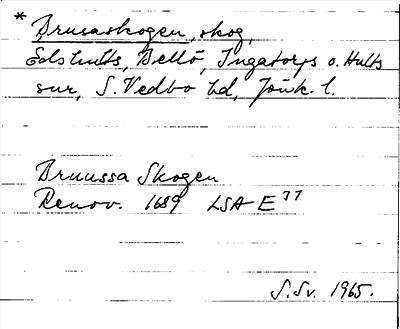 * Brusaskogen, skog,
Edshults, Bellö, Ingatorps o. Hults
snr, S. Vedbo hd, Jönk. l.
Bruussa Skogen
Renov. 1689 LSA E 77
S.Sv. 1965.